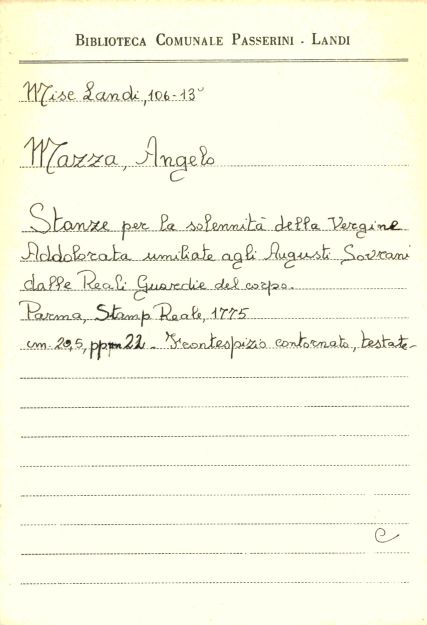 BIBLIOTECA COMUNALE PASSERINI - LANDI
Misc Landi, 106-13°
Mazza, Angelo
Stanze per la solennità della Vergine
Addolorata umiliate agli Augusti Sovrani
dalle Reali Guardie del corpo.
Parma, Stamp Reale, 1775
cm. 29,5, pp. 22 - Frontespizio contornato, testate-
C